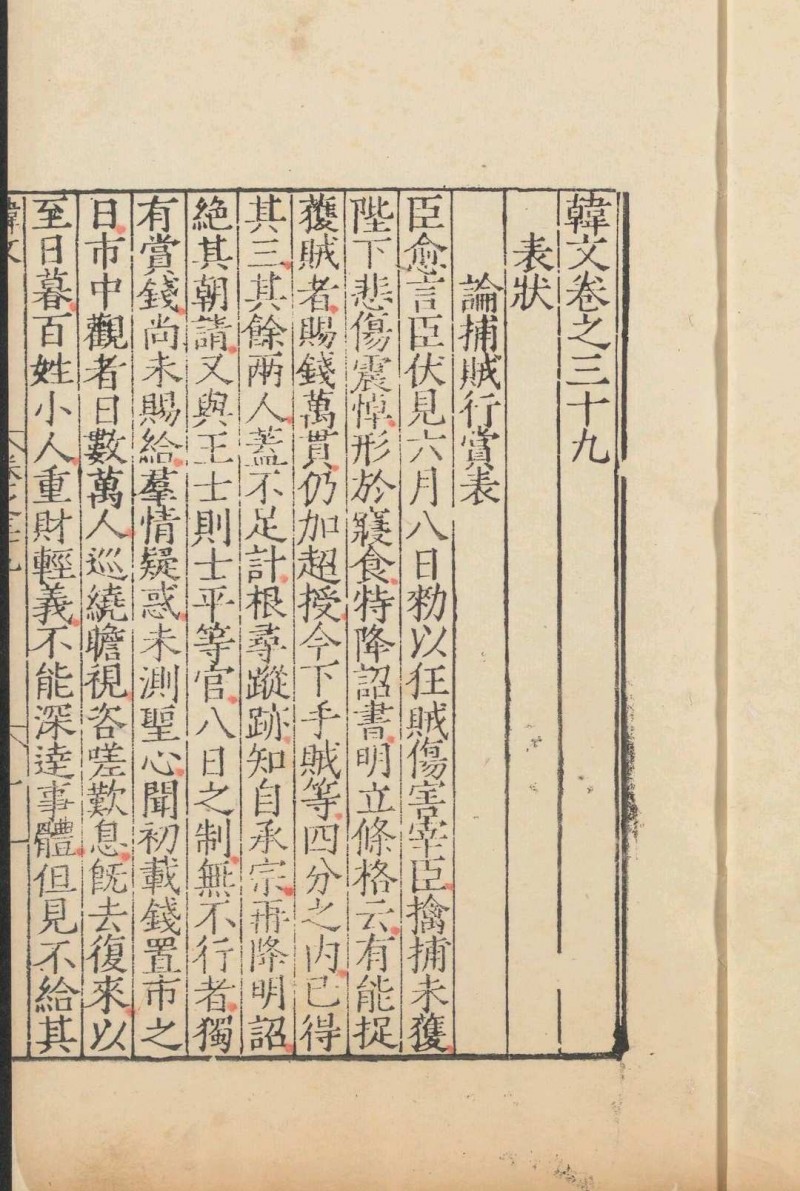 韓文卷之三十九
表狀
論捕賊行賞表
臣愈言臣伏見六月八日勑以狂賊傷害宰臣擒捕未獲
陛下悲傷震悼形於寢食特降詔書明立條格云有能捉
獲賊者賜錢萬貫仍加超授今下手賊等四分之內已得
其三其餘兩人蓋不足計根尋蹤跡知自承宗再降明詔
絶其朝請又與王士則士平等官八日之制無不行者獨
有賞錢尚未賜給羣情疑惑未測聖心聞初載錢置市之
日市中觀者日數萬人巡繞瞻視咨嗟歎息旣去復來以
至日暮百姓小人重財輕義不能深達事體但見不給其
韓文